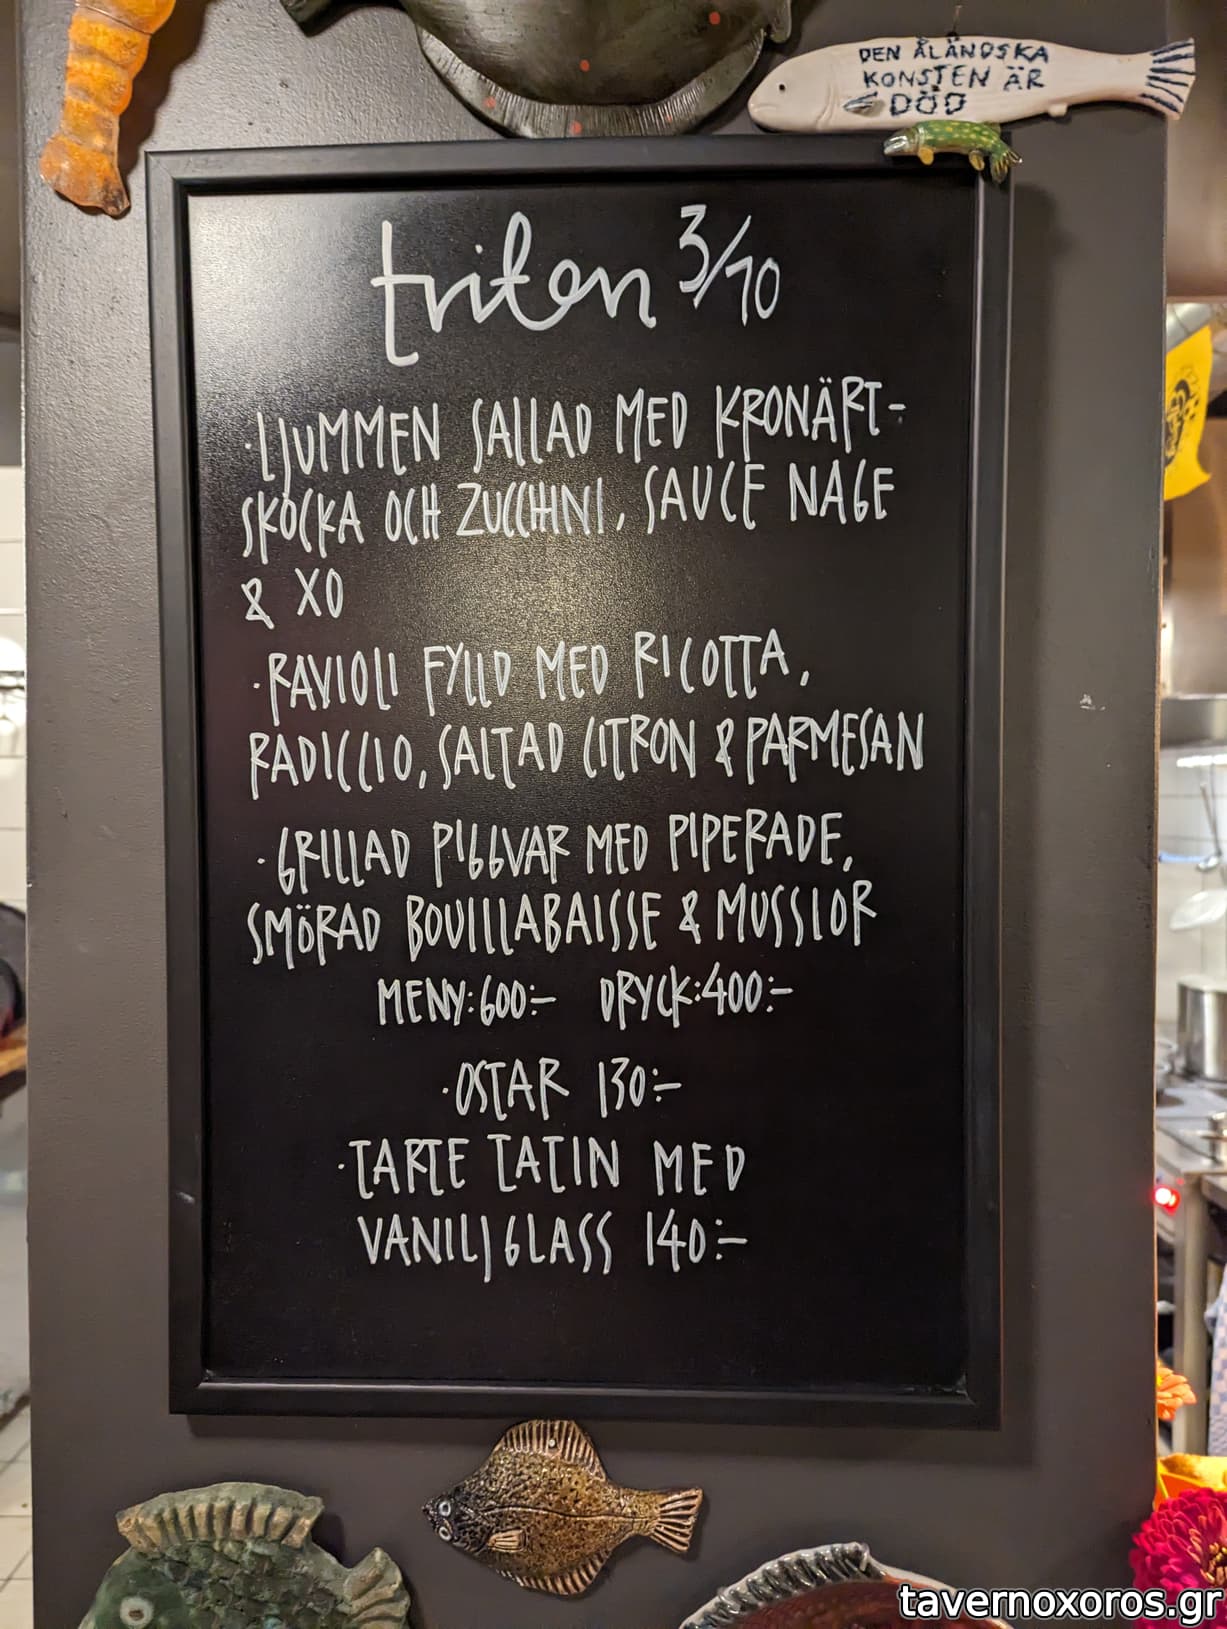 DEN ÅLÄNDSKA
KONSTEN ÄR
DÖD
triton 3/10
·LJUMMEN SALLAD MED KRONÄRT-
SKOCKA OCH ZUCCHINI, SAUCE NAGE
& XO
·RAVIOLI FYLLD MED RICOTTA,
RADICCIO, SALTAD CITRON & PARMESAN
·GRILLAD PIGGVAR MED PIPERADE,
SMÖRAD BOUILLABAISSE & MUSSLOR
MENY:600:- DRYCK:400:-
·OSTAR 130:-
·TARTE TATIN MED
VANILJGLASS 140:-
tavernoxoros.gr